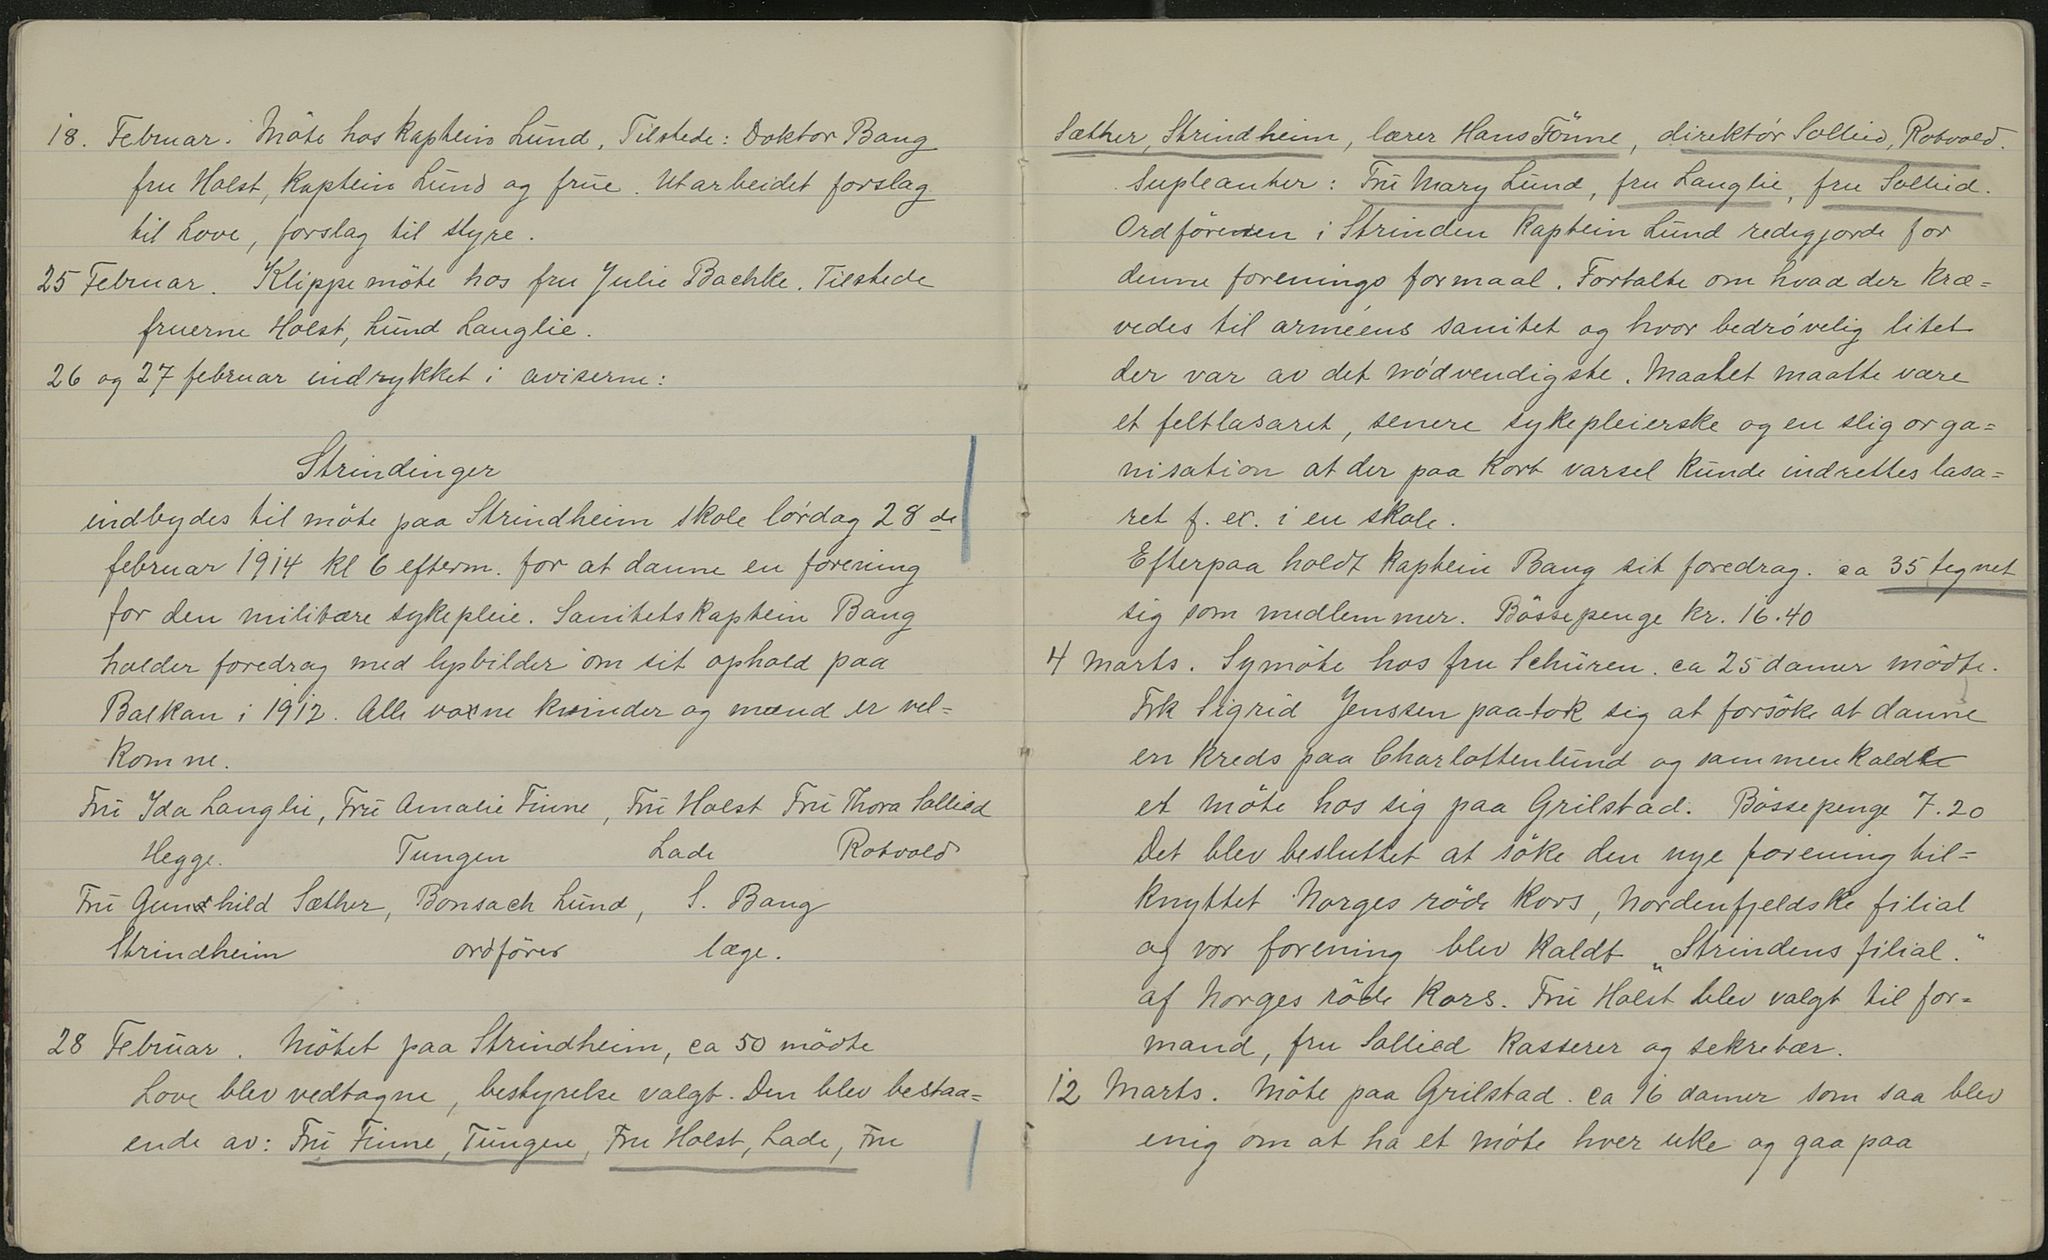 18. Februar. Möte hos Kaptein Lund. Tilstede: Doktor Bang
fru Holst, Kaptein Lund og frue. Utarbeidet forslag
til Love, forslag til styre.
25 Februar. Klippemöte hos fru Julie Bachke. Tilstede
fruerne Holst, Lund Langlie.
26 og 27 februar indrykket i aviserne:
Strindinger
indbydes til möte paa Strindheim skole lördag 28de
februar 1914 kl 6 efterm. for at danne en forening
for den militære sykepleie. Sanitetskaptein Bang
holder foredrag med lysbilder om sit ophold paa
Balkan i 1912. Alle voxne kvinder og mænd er vel=
komne.
Fru Ida Langlie, Fru Amalie Finne, Fru Holst Fru Thora Sollied
Hegge. Tungen Lade Rotvold
Fru Gunhild Sæther, Bonsach Lund, S. Bang
Strindheim ordförer læge.
28 Februar. Mötet paa Strindheim, ca 50 mödte
Love blev vedtagne, bestyrelse valgt. Den blev bestaa=
ende av: Fru Finne, Tungen, Fru Holst, Lade, Fru
Sæther, Strindheim, lærer Hans Fönne, direktör Sollied, Rotvold.
Supleanter: Fru Mary Lund, fru Langlie, fru Sollied.
Ordföreren i Strinden Kaptein Lund redegjorde for
denne forenings formaal. Fortalte om hvad der kræ=
vedes til armeens sanitet og hvor bedrövelig litet
der var av det nödvendigste. Maalet maatte være
et feltlasaret, senere sykepleierske og en slig orga=
nisation at der paa kort varsel kunde indrettes lasa=
ret f. ex. i en skole.
Efterpaa holdt Kaptein Bang sit foredrag. ca 35 tegnet
sig som medlemmer. Bössepenge kr. 16.40
4 Marts. Symöte hos fru Schüren. ca 25 damer mödte.
Frk Sigrid Jenssen paatok sig at forsöke at danne
en kreds paa Charlottenlund og sammenkaldte
et möte hos sig paa Grilstad. Bössepenge 7.20
Det blev besluttet at söke den nye forening til=
knyttet Norges röde Kors, Nordenfjeldske filial
og vor forening blev kaldt „Strindens filial."
af Norges röde Kors. Fru Holst blev valgt til for=
mand, fru Sollied kasserer og sekretær.
12 Marts. Möte paa Grilstad. ca 16 damer som saa blev
enig om at ha et möte hver uke og gaa paa